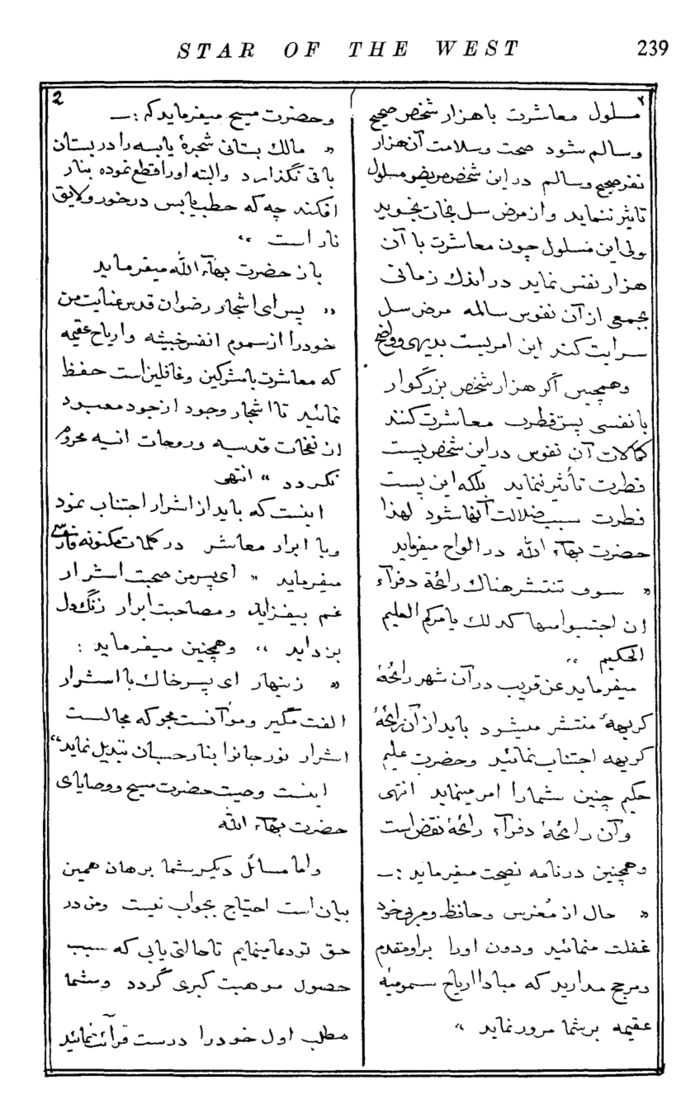 STAR OF THE WEST 239
مسلول معاشرت با هزار شخص صحیح
و سالم شود صحت و سلامت آن هزار
نفر صحیح و سالم در این شخص مریض و مسلول
تاثیر ننماید و از مرض سل نجات نجوید
ولی این مسلول چون معاشرت با آن
هزار نفس نماید در اندک زمانی
بجمعی از آن نفوس سالمه مرض سل
سرایت کند این امریست بدیهی و واضح
و همچنین اگر هزار شخص بزرگوار
با نفسی پست فطرت معاشرت کنند
کمالات آن نفوس در این شخص پست
فطرت تأثیر ننماید بلکه این پست
فطرت سبب ضلالت آنها شود لهذا
حضرت بهآء الله در الواح میفرماید
« سوف تنتشر هناک رائحة دفرآء
ان اجتنبوا منها کذلک یأمرکم العلیم
الحکیم »
میفرماید عن قریب در آن شهر رائحهٔ
کریهه منتشر میشود باید از آن رائحهٔ
کریهه اجتناب نمائید و حضرت علیم
حکیم چنین شما را امر مینماید انتهی
و آن رائحهٔ دفرآء رائحهٔ نقض است
و همچنین در نامه نصیحت میفرماید :ــ
« حال از مُغرس و حافظ و مربی خود
غفلت منمائید و دون او را بر او مقدم
و مرجح مدارید که مبادا اریاح سمومیهٔ
عقیمه بر شما مرور نماید »
2
و حضرت مسیح میفرماید که :ــ
« مالک بستانی شجرهٔ یابسه را در بستان
باقی نگذارد و البته او را قطع نموده بنار
افکند چه که حطب یابس در خور و لایق
نار است »
باز حضرت بهآء الله میفرماید
« پس ای اشجار رضوان قدس عنایت من
خود را از سموم انفس خبیثه و اریاح عقیمه
که معاشرت با مشرکین و غافلین است حفظ
نمائید تا اشجار وجود از جود معبود
از نفحات قدسیه و روحات انسیه محروم
نگردد » انتهی
اینست که باید از اشرار اجتناب نمود
و با ابرار معاشر در کلمات مکنونه فارسی
میفرماید « ای پسر من صحبت اشرار
غم بیفزاید و مصاحبت ابرار زنگ دل
بزداید » و همچنین میفرماید :
« زینهار ای پسر خاک با اشرار
الفت مگیر و موآنست مجو که مجالست
اشرار نور جانرا بنار حسبان تبدیل نماید »
اینست وصیت حضرت مسیح و وصایای
حضرت بهآء الله
و اما مسائل دیگر شما برهان همین
بیان است احتیاج بجواب نیست و من در
حق تو دعا مینمایم تا حالتی یابی که سبب
حصول موهبت کبری گردد و شما
مطلب اول خود را درست قرآئت نمائید